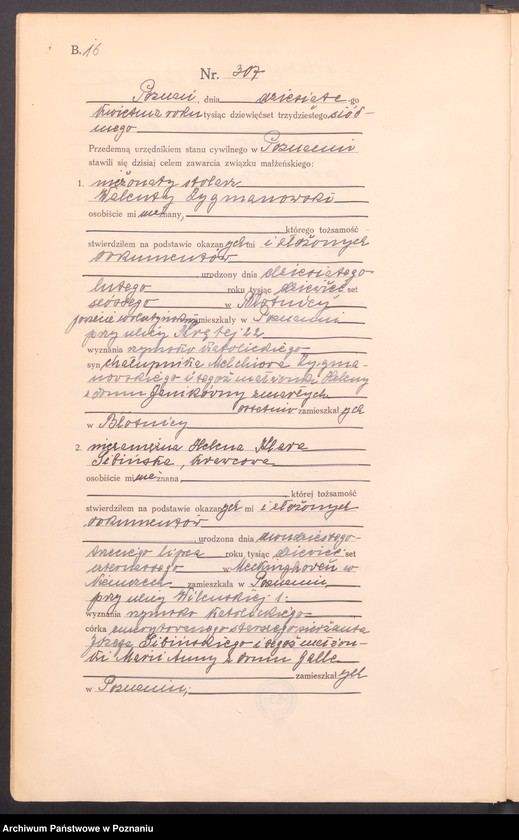 B. 16
Nr. 307
Poznań, dnia dziesiąte-go
kwietnia roku tysiąc dziewięćset trzydziestego siód-
mego
Przedemną urzędnikiem stanu cywilnego w Poznaniu
stawili się dzisiaj celem zawarcia związku małżeńskiego:
1. nieżonaty stolarz
Walenty Zygmanowski
osobiście mi nieznany,
którego tożsamość
stwierdziłem na podstawie okazanych mi i złożonych
dokumentów
urodzony dnia dziesiątego
lutego roku tysiąc dziewięćset
siódmego w Błotnicy
powiecie wolsztyńskim zamieszkały w Poznaniu
przy ulicy Krętej 22
wyznania rzymsko katolickiego
syn chałupnika Melchiora Zygma-
nowskiego i tegoż małżonki Heleny
z domu Janików zmarłych
ostatnio zamieszkałych
w Błotnicy
2. niezamężna Helena Klara
Sibińska, krawcowa
osobiście mi nieznana,
której tożsamość
stwierdziłem na podstawie okazanych mi i złożonych
dokumentów
urodzona dnia dwudziestego
trzeciego lipca roku tysiąc dziewięćset
czternastego w
Niemczech zamieszkała w Poznaniu,
przy ulicy Wileńskiej 1.
wyznania rzymsko katolickiego
córka emerytowanego starszego sierżanta
Józefa Sibińskiego i tegoż małżon-
ki Marii Anny z domu Galle
zamieszkałych
w Poznaniu;
Archiwum Państwowe w Poznaniu
szukajwarchiwach.gov.pl